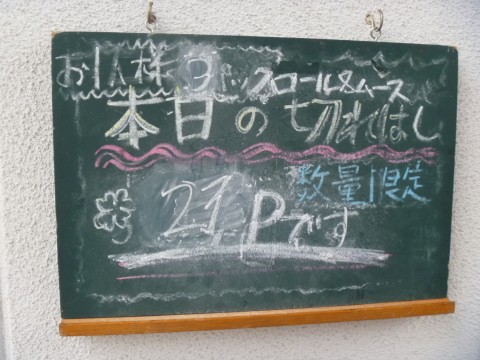 お1人様3コ
ロール&ムース
本日の切れはし
数量限定
21Pです